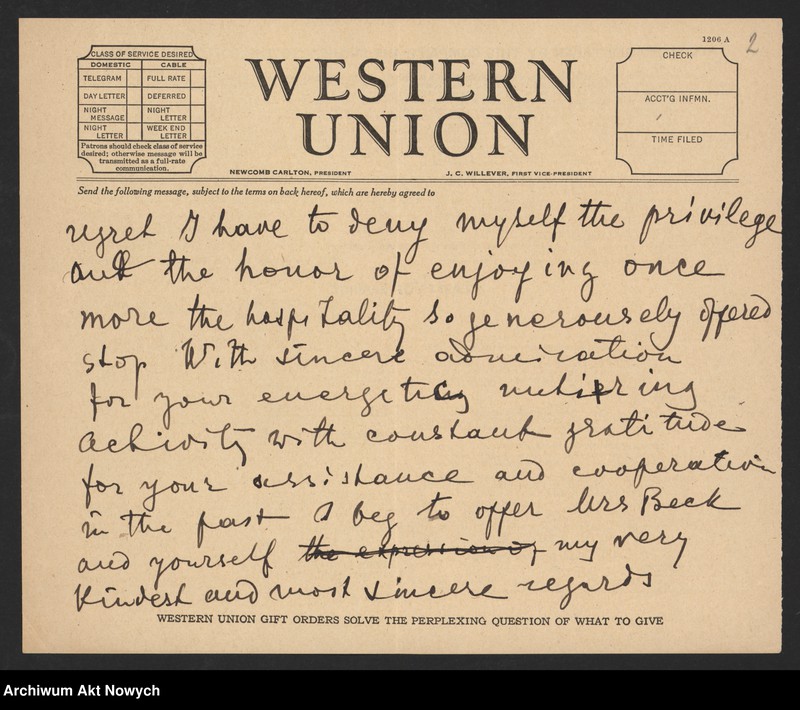 1206 A
2
CLASS OF SERVICE DESIRED
DOMESTIC CABLE
TELEGRAM FULL RATE
DAY LETTER DEFERRED
NIGHT MESSAGE NIGHT LETTER
NIGHT LETTER WEEK END LETTER
Patrons should check class of service
desired; otherwise message will be
transmitted as a full-rate
communication.
WESTERN
UNION
NEWCOMB CARLTON, PRESIDENT J. C. WILLEVER, FIRST VICE-PRESIDENT
CHECK
ACCT'G INFMN.
TIME FILED
Send the following message, subject to the terms on back hereof, which are hereby agreed to
regret I have to deny myself the privilege
and the honor of enjoying once
more the hospitality so generously offered
stop With sincere admiration
for your energetic untiring
activity with constant gratitude
for your assistance and cooperation
in the past I beg to offer Mrs Beck
and yourself the expression of my very
kindest and most sincere regards
WESTERN UNION GIFT ORDERS SOLVE THE PERPLEXING QUESTION OF WHAT TO GIVE
Archiwum Akt Nowych